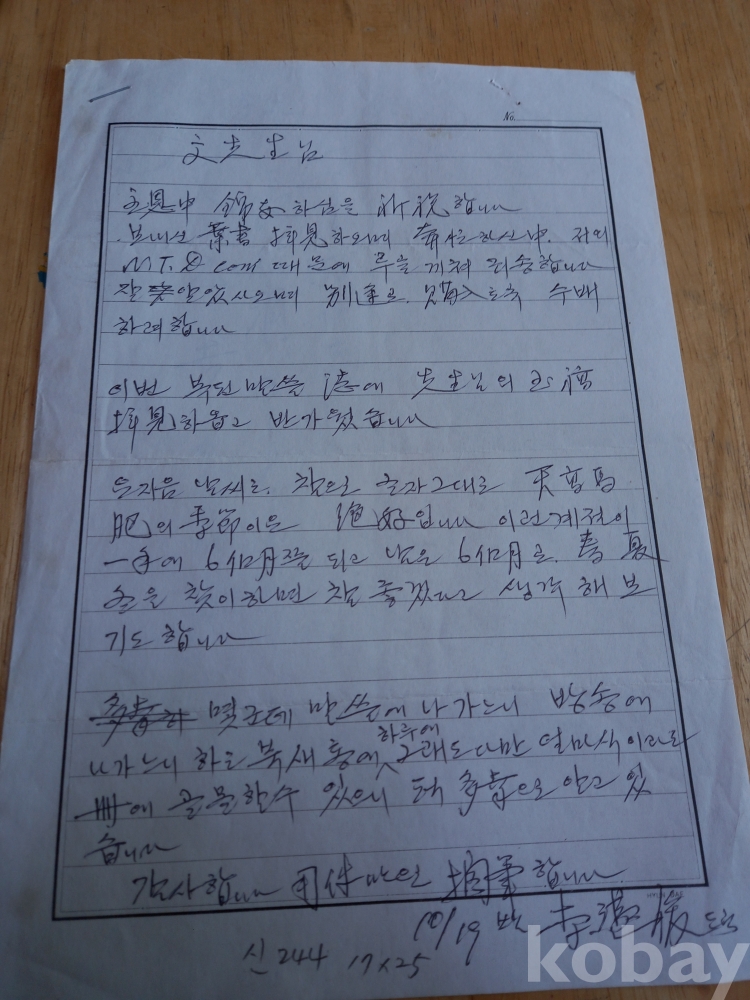 No.
文先生님
主恩中 錦安하심을 祈祝합니다
보내신 葉書 拜見하오며 奔忙하신中. 저의
때문에 폐송합니다
잘 알았사오며 別途로. 購入토록 수배
하려합니다
이번 복된 말씀 誌에 先生님의 玉稿
拜見하옵고 반가웠습니다
요지음 날씨로. 참으로 글자그대로 天高馬
肥의 季節이온 絶好입니다 이런계절이
一年에 6個月쯤 되고 남은 6個月로. 春夏
冬을 찾이하면 참 좋겠다고 생각 해 보
기도 합니다
몇군데 말씀에 나가느니 방송에
나가느니 하는 북새통에, 하루에 그래도 다만 얼마식이라도
冊에 골몰할수 있으니 多幸으로 알고 있
습니다
감사합니다 用件만으로 擱筆합니다
10/19 밤 李
신 244 17x25
kobay